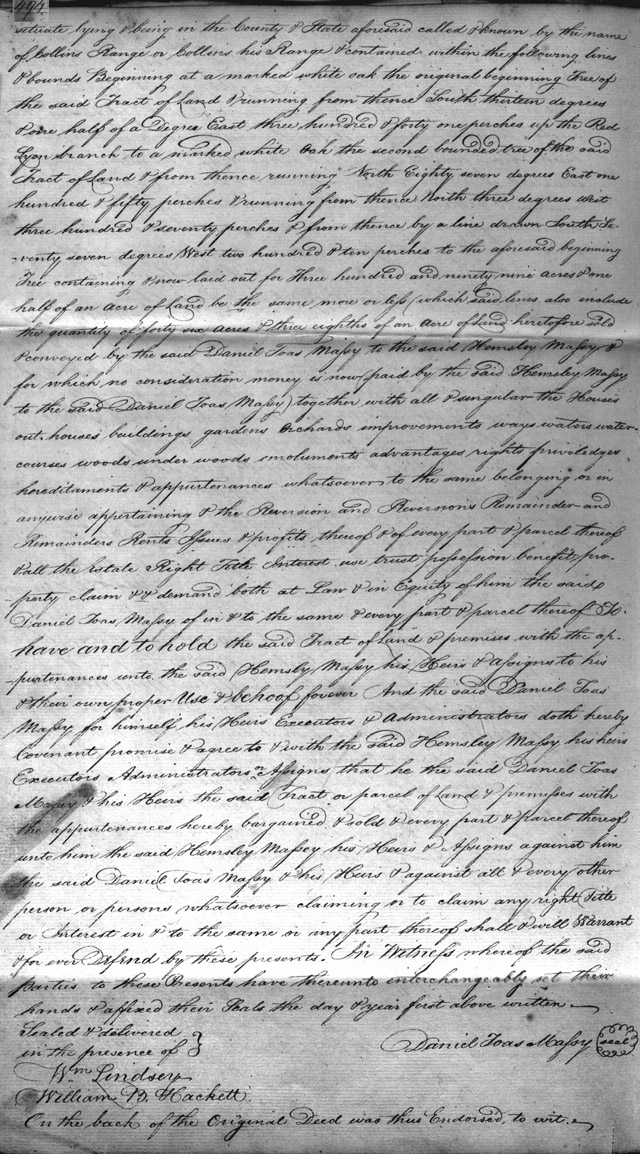 494
situate lying & being in the County & State aforesaid called & known by the name
of Collins Range or Collins his Range & contained within the following lines
& bounds Beginning at a marked white oak the original beginning Tree of
the said Tract of Land & running from thence South thirteen degrees
& one half of a Degree East three hundred & forty one perches up the Red
Lyon branch to a marked white Oak the second bounded tree of the said
Tract of Land & from thence running North Eighty seven degrees East one
hundred & fifty perches & running from thence North three degrees west
three hundred & seventy perches & from thence by a line drawn South Se-
-venty seven degrees West two hundred & ten perches to the aforesaid beginning
Tree containing & now laid out for Three hundred and ninety nine acres & one
half of an acre of Land be the same more or less (which said lines also include
the quantity of forty six acres & three eighths of an acre of Land heretofore sold
& conveyed by the said Daniel Toas Massy to the said Hemsley Massy &
for which no consideration money is now paid by the said Hemsley Massy
to the said Daniel Toas Massy) together with all & singular the Houses
out houses buildings gardens Orchards improvements ways waters water-
courses woods under woods emoluments advantages rights priviledges
hereditaments & appurtenances whatsoever to the same belonging or in
anywise appertaining & the Reversion and Reversions Remainder and
Remainders Rents Issues & profits thereof & of every part & parcel thereof
& all the Estate Right Title Interest use trust possession benefit pro-
-perty claim & demand both at Law & in Equity of him the said
Daniel Toas Massy of in & to the same & every part & parcel thereof To
have and to hold the said Tract of Land & premises with the ap-
-purtenances unto the said Hemsly Massy his Heirs & Assigns to his
& their own proper Use & behoof forever And the said Daniel Toas
Massy for himself his Heirs Executors & Administrators doth hereby
Covenant promise & agree to & with the said Hemsley Massy his heirs
Executors Administrators or Assigns that he the said Daniel Toas
Massy & his Heirs the said Tract or parcel of Land & premises with
the appurtenances hereby bargained & sold & every part & parcel thereof
unto him the said Hemsley Massey his Heirs & Assigns against him
the said Daniel Toas Massy & his Heirs & against all & every other
person or persons whatsoever claiming or to claim any right Title
or Interest in & to the same or any part thereof shall & will Warrant
& for ever Defend by these presents. In Witness whereof the said
parties to these Presents have thereunto interchangeably set their
hands & affixed their Seals the day & year first above written.
Sealed & delivered
in the presence of }
Daniel Toas Massy (seal)
Wm Lindsey
William B. Hackett.
On the back of the Original Deed was thus Endorsed, to wit.